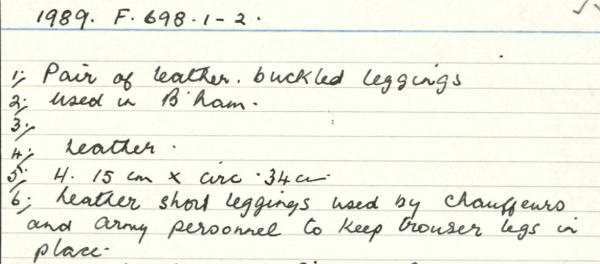 1989. F. 698.1-2.
1; Pair of leather. buckled leggings
2; used in B'ham.
3;
4; Leather.
5; H. 15 cm x circ. 34cm
6; Leather short leggings used by chauffeurs
and army personnel to keep trouser legs in
place.